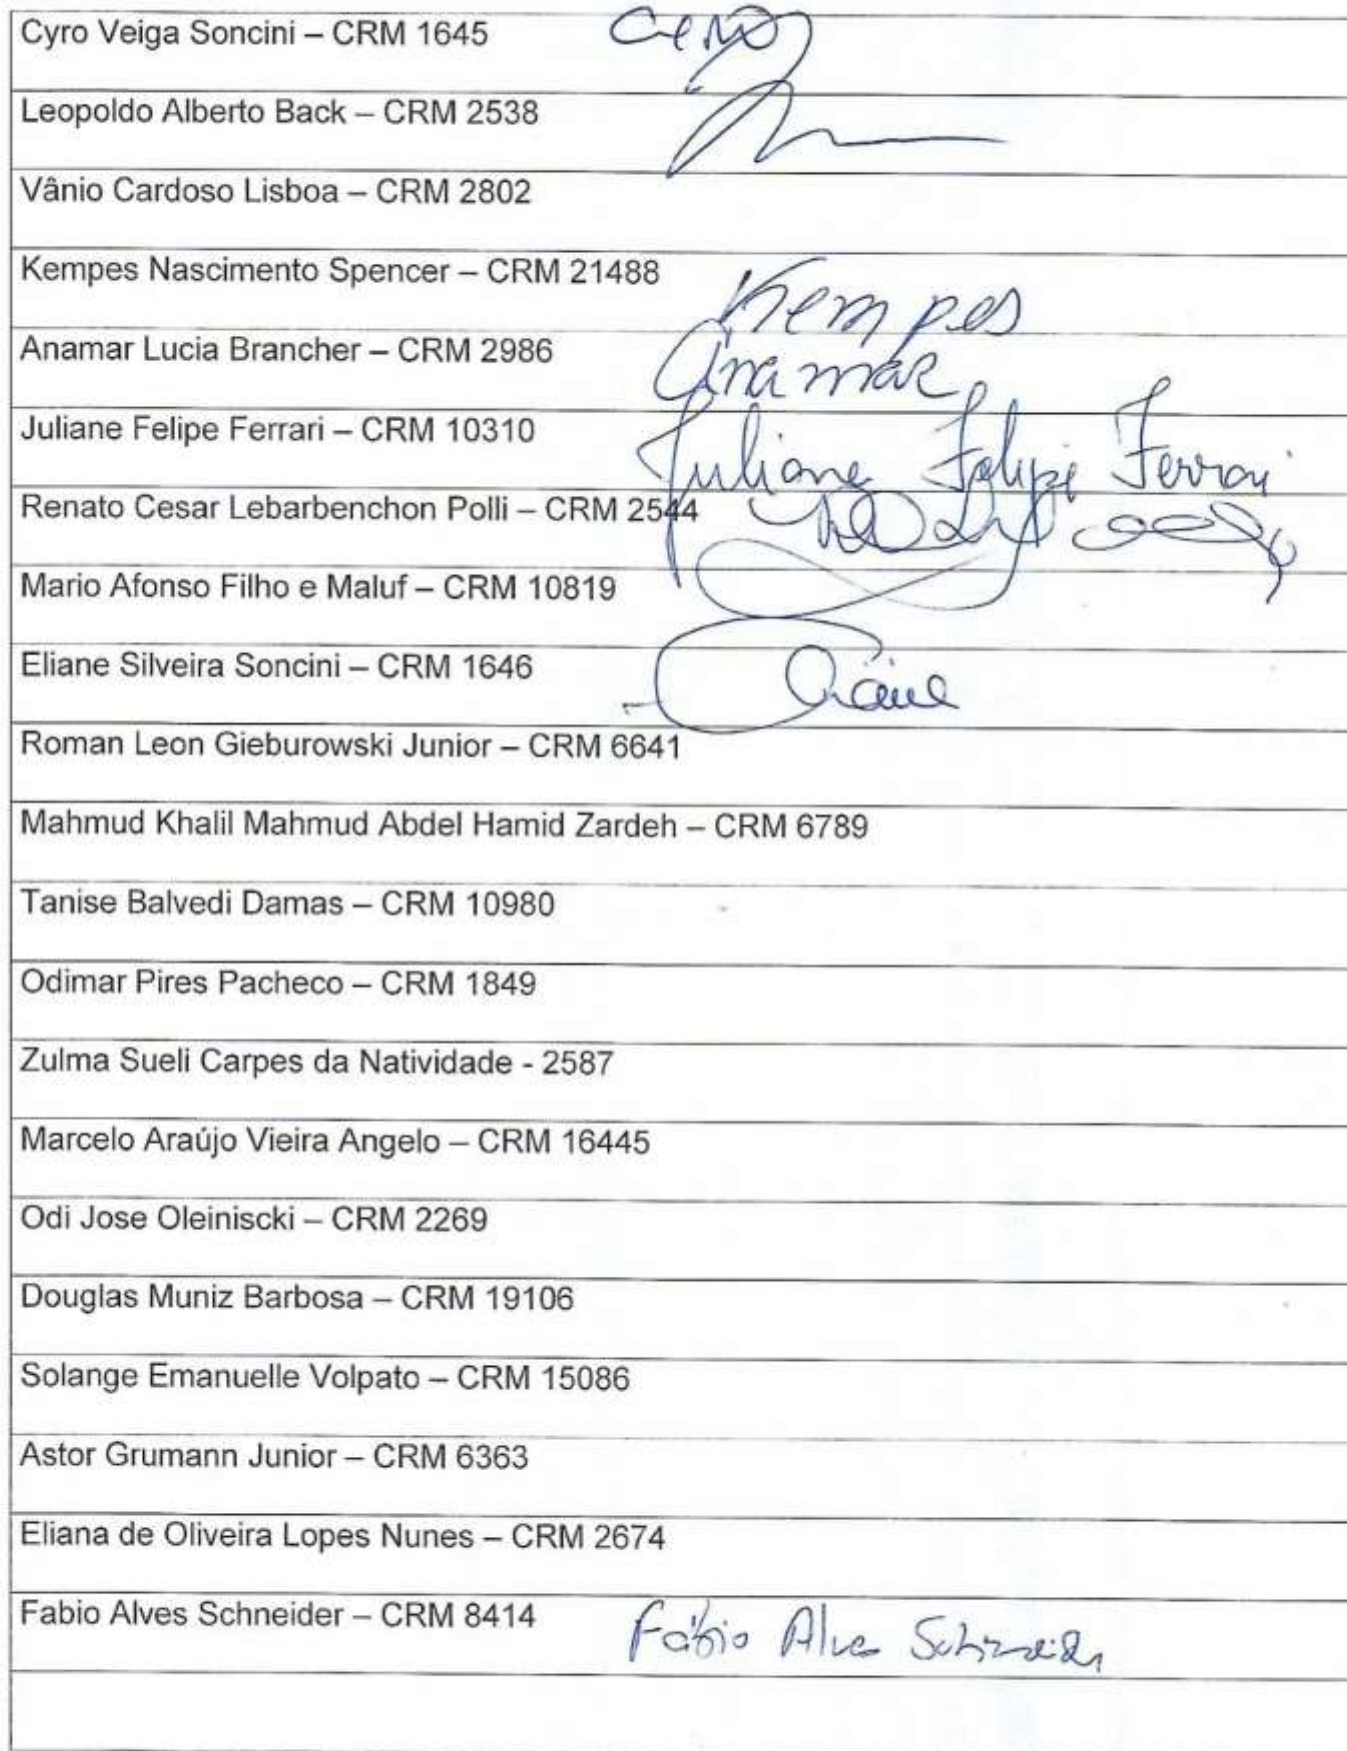 Cyro Veiga Soncini – CRM 1645
Leopoldo Alberto Back – CRM 2538
Vânio Cardoso Lisboa – CRM 2802
Kempes Nascimento Spencer – CRM 21488 Kempes
Anamar Lucia Brancher – CRM 2986 Anamar
Juliane Felipe Ferrari – CRM 10310 Juliane Felipe Ferrari
Renato Cesar Lebarbenchon Polli – CRM 2544
Mario Afonso Filho e Maluf – CRM 10819
Eliane Silveira Soncini – CRM 1646
Roman Leon Gieburowski Junior – CRM 6641
Mahmud Khalil Mahmud Abdel Hamid Zardeh – CRM 6789
Tanise Balvedi Damas – CRM 10980
Odimar Pires Pacheco – CRM 1849
Zulma Sueli Carpes da Natividade - 2587
Marcelo Araújo Vieira Angelo – CRM 16445
Odi Jose Oleiniscki – CRM 2269
Douglas Muniz Barbosa – CRM 19106
Solange Emanuelle Volpato – CRM 15086
Astor Grumann Junior – CRM 6363
Eliana de Oliveira Lopes Nunes – CRM 2674
Fabio Alves Schneider – CRM 8414 Fábio Alves Schneider